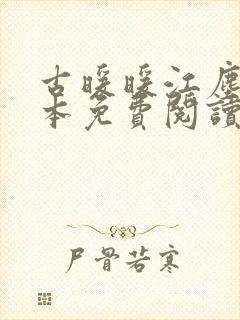 古暖暖江塵
本免費閱讀
尸骨若寒